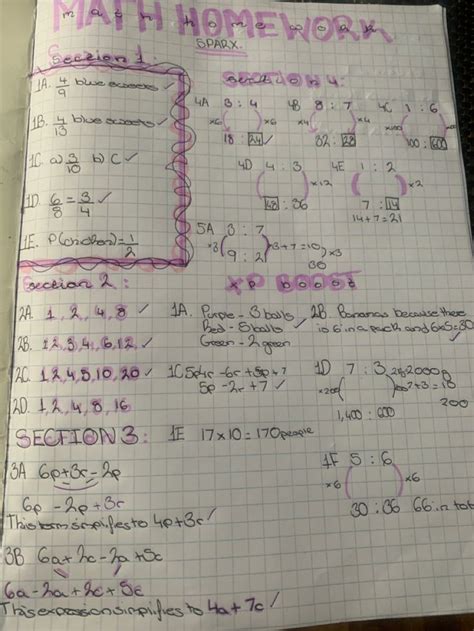 MATH HOMEWORK
math homework
SPARX.
Section 1:
1A. 4/9 blue sweets ✓
1B. 4/13 blue sweets ✓
1C. a) 3/10 b) C ✓
1D. 6/8 = 3/4 ✓
1E. = 1/2
Section 2:
2A. 1, 2, 4, 8 ✓
2B. 1, 2, 3, 4, 6, 12, ✓
2C. 1, 2, 4, 5, 10, 20 ✓
2D. 1, 2, 4, 8, 16
SECTION 3:
3A 6p+3r-2p
6p - 2p + 3r
This term simplifies to 4p+3r ✓
3B 6a+2c-2a+5c
6a-2a+2c+5c
This expression simplifies to 4a+7c ✓
Section 4:
4A 3 : 4
×6 ×6
18 : 24 ✓
4B 8 : 7
×4 ×4
32 : 28
4C 1 : 6
×100 ×100
100 : 600
4D 4 : 3
×12
48 : 36
4E 1 : 2
×2
7 : 14
14+7=21
5A 3 : 7
×3 (9 : 21) 3+7=10 ×3
30
XP BOOST
1A. Purple - 3 balls
Red - 5 balls ✓
Green - 2 green
2B. Bananas because there
is 6 in a pack and 6x5=30
1C 5p -6r +5p+7
5p -2r +7 ✓
1D 7 : 3 2000g
×200 7+3=10
200
1,400 : 600
1E 17×10=170 people
1F 5 : 6
×6 ×6
30 : 36 66 in tot